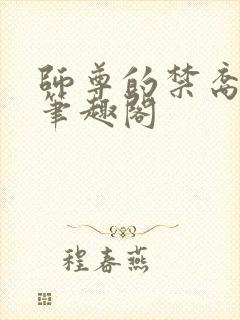 師尊的禁脔
筆趣閣
程春燕